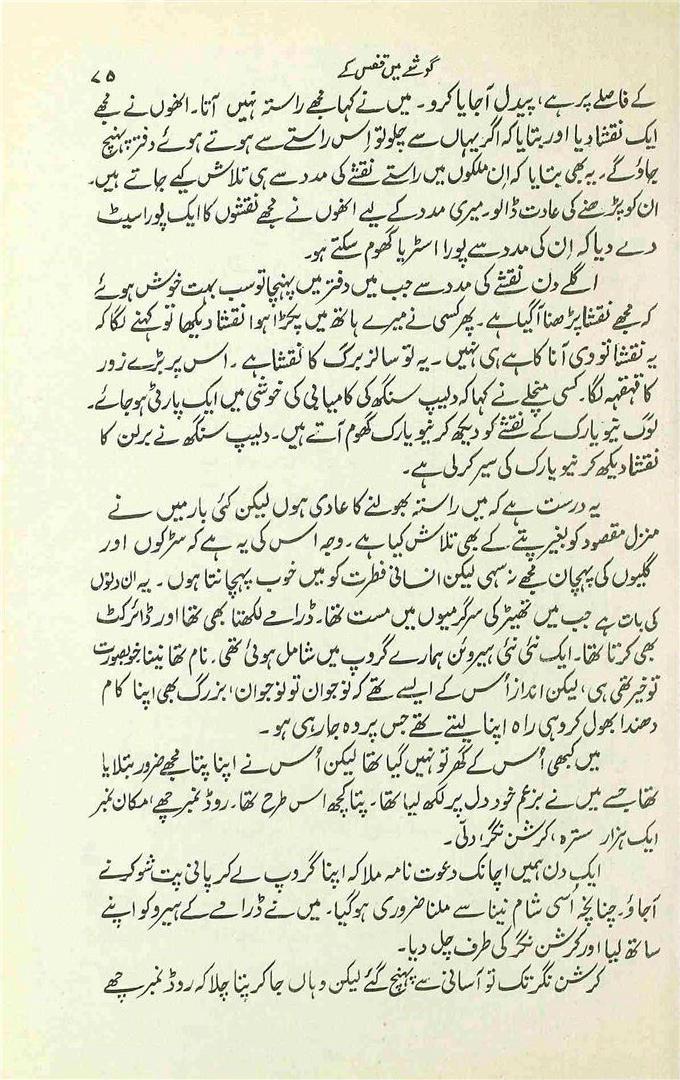 گوشے میں قفس کے
۷۵
کے فاصلے پر ہے، پیدل آجایا کرو۔ میں نے کہا مجھے راستہ نہیں آتا۔ انھوں نے مجھے
ایک نقشا دیا اور بتایا کہ اگر یہاں سے چلو تو اِس راستے سے ہوتے ہوئے دفتر پہنچ
جاؤ گے۔ یہ بھی بتایا کہ اِن ملکوں میں راستے نقشے کی مدد سے ہی تلاش کیے جاتے ہیں۔
ان کو پڑھنے کی عادت ڈالو۔ میری مدد کے لیے انھوں نے مجھے نقشوں کا ایک پورا سیٹ
دے دیا کہ اِن کی مدد سے پورا اسٹریا گھوم سکتے ہو۔
اگلے دن نقشے کی مدد سے جب میں دفتر میں پہنچا تو سب بہت خوش ہوئے
کہ مجھے نقشا پڑھنا آگیا ہے۔ پھر کسی نے میرے ہاتھ میں پکڑا ہوا نقشا دیکھا تو کہنے لگا کہ
یہ نقشا تو وی آنا کا ہے ہی نہیں۔ یہ تو سالزبرگ کا نقشا ہے۔ اس پر بڑے زور
کا قہقہہ لگا۔ کسی منچلے نے کہا کہ دلیپ سنگھ کی کامیابی کی خوشی میں ایک پارٹی ہوجائے۔
لوگ نیویارک کے نقشے کو دیکھ کر نیویارک گھوم آتے ہیں۔ دلیپ سنگھ نے برلن کا
نقشا دیکھ کر نیویارک کی سیر کرلی ہے۔
یہ درست ہے کہ میں راستہ بھولنے کا عادی ہوں لیکن کئی بار میں نے
منزل مقصود کو بغیر پتے کے بھی تلاش کیا ہے۔ وجہ اس کی یہ ہے کہ سڑکوں اور
گلیوں کی پہچان مجھے نہ سہی لیکن انسانی فطرت کو میں خوب پہچانتا ہوں۔ یہ ان دنوں
کی بات ہے جب میں تھیٹر کی سرگرمیوں میں مست تھا۔ ڈرامے لکھتا بھی تھا اور ڈائرکٹ
بھی کرتا تھا۔ ایک نئی نئی ہیروئن ہمارے گروپ میں شامل ہوئی تھی۔ نام تھا نینا۔ خوبصورت
تو خیر تھی ہی، لیکن انداز اُس کے ایسے تھے کہ نوجوان تو نوجوان، بزرگ بھی اپنا کام
دھندا بھول کر وہی راہ اپنا لیتے تھے جس پر وہ جا رہی ہو۔
میں کبھی اُس کے گھر تو نہیں گیا تھا لیکن اُس نے اپنا پتا مجھے ضرور بتلایا
تھا جسے میں نے بزعم خود دل پر لکھ لیا تھا۔ پتا کچھ اس طرح تھا۔ روڈ نمبر چھے، مکان نمبر
ایک ہزار سترہ، کرشن نگر، دلّی۔
ایک دن ہمیں اچانک دعوت نامہ ملا کہ اپنا گروپ لے کر پانی پت شو کرنے
آجاؤ۔ چنانچہ اُسی شام نینا سے ملنا ضروری ہوگیا۔ میں نے ڈرامے کے ہیرو کو اپنے
ساتھ لیا اور کرشن نگر کی طرف چل دیا۔
کرشن نگر تک تو آسانی سے پہنچ گئے لیکن وہاں جاکر پتا چلا کہ روڈ نمبر چھے